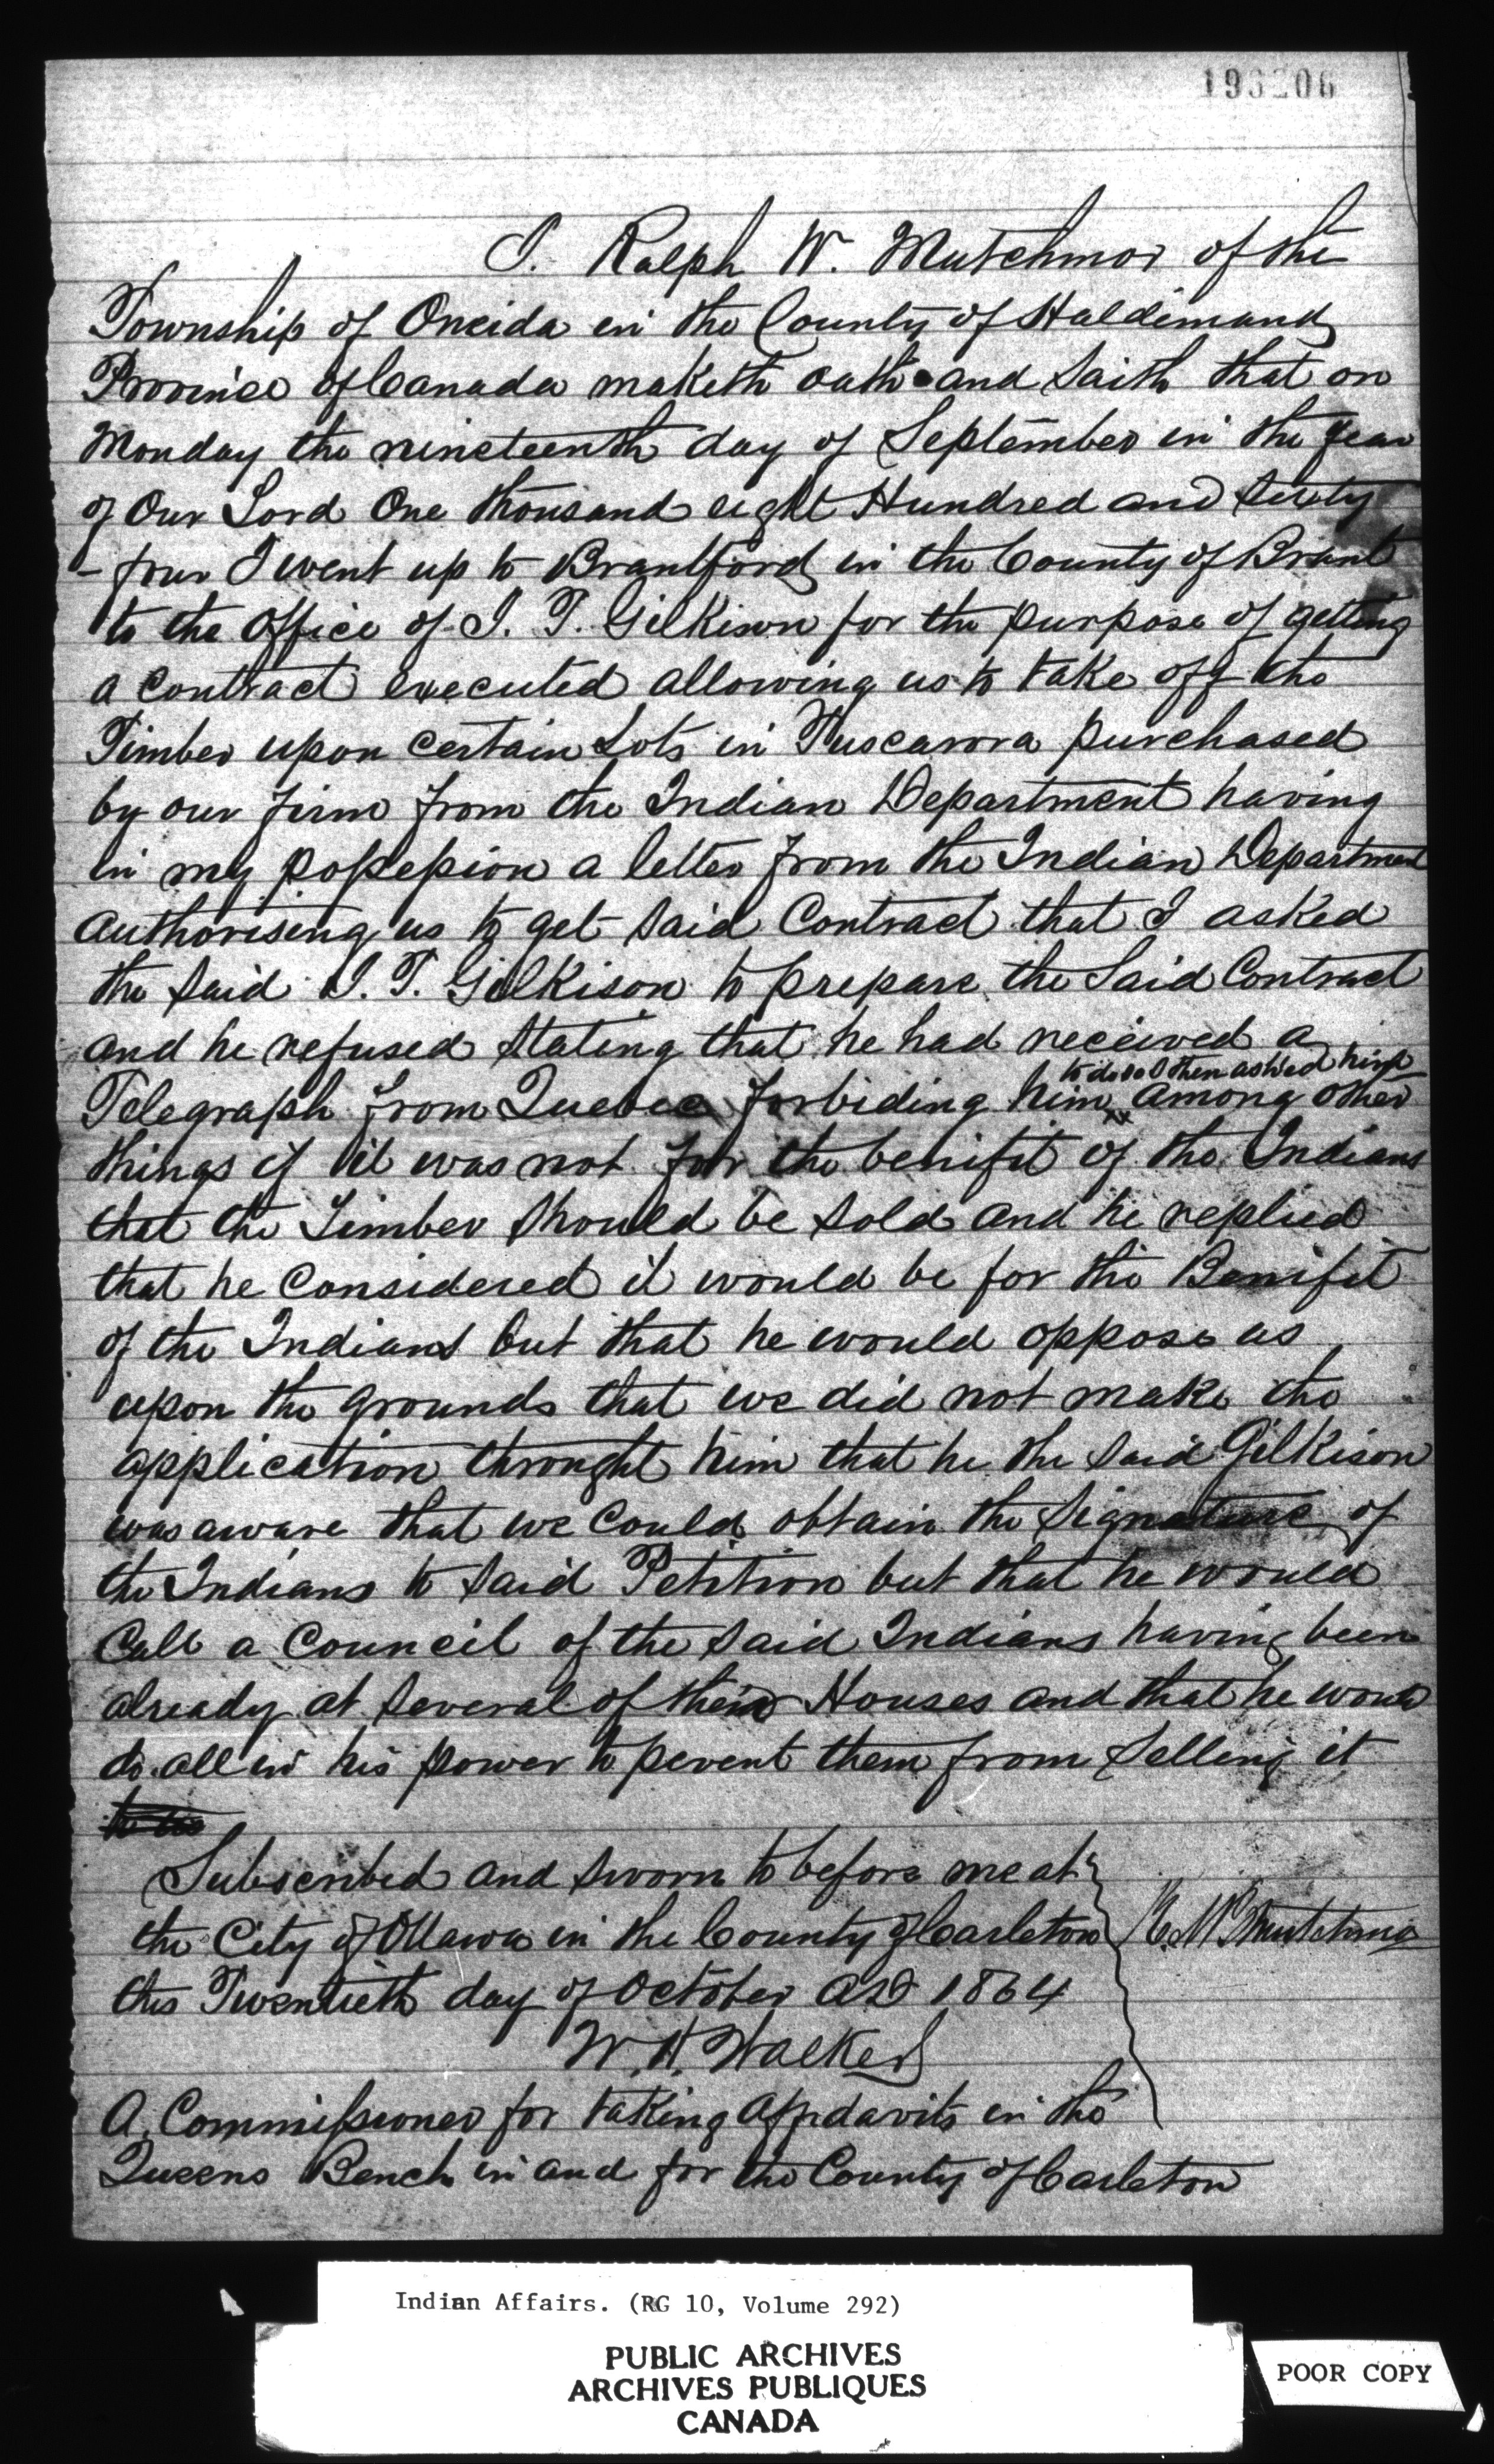 193206
I. Ralph W. Mutchmor of the
Township of Oneida in the County of Haldimand
Province of Canada maketh oath and saith that on
Monday the nineteenth day of September in the year
of Our Lord One thousand eight Hundred and sixty
-four I went up to Brantford in the County of Brant
to the Office of J. T. Gilkison for the purpose of getting
a contract executed allowing us to take off the
Timber upon certain Lots in Tuscarora purchased
by our firm from the Indian Department having
in my possession a letter from the Indian Department
authorising us to get said Contract that I asked
the said J. T. Gilkison to prepare the Said Contract
and he refused stating that he had received a
to do so I then asked him
Telegraph from Quebec forbiding him among other
things if it was not for the benifit of the Indians
that the Timber should be sold and he replied
that he considered it would be for the Benifit
of the Indians but that he would oppose us
upon the grounds that we did not make the
application throught him that he the said Gilkison
was aware that we could obtain the Signature of
the Indians to said Petition but that he would
Call a Council of the said Indians having been
already at several of their Houses and that he would
do all in his power to pevent them from selling it
to us
Subscribed and sworn to before me at
the City of Ottawa in the County of Carleton
R. W. Mutchmor
this Twentieth day of October AD 1864
W. H. Walker
A. Commissioner for taking affidavits in the
Queens Bench in and for the County of Carleton
Indian Affairs. (RG 10, Volume 292)
PUBLIC ARCHIVES
ARCHIVES PUBLIQUES
CANADA
POOR COPY